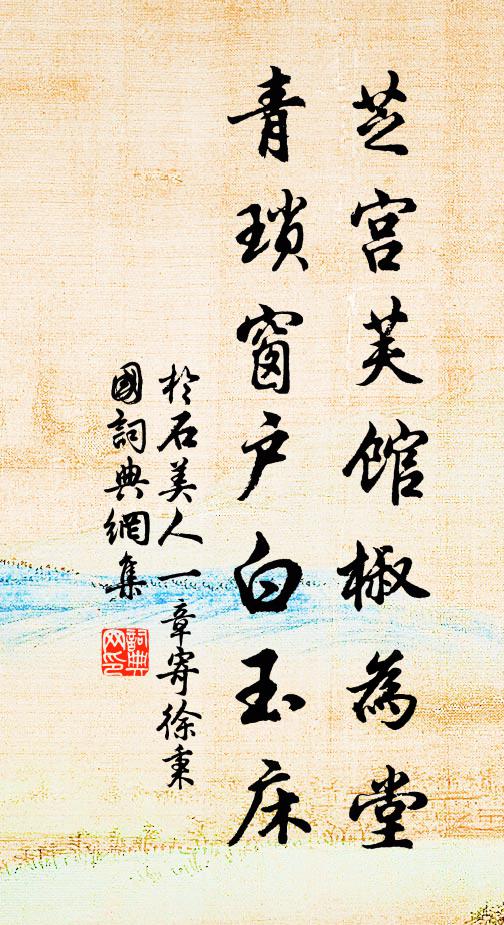 芝宫芙馆椒為堂
青瑣窗户白玉床
於石美人一章寄徐秉
國詞典網集
詞典
网印